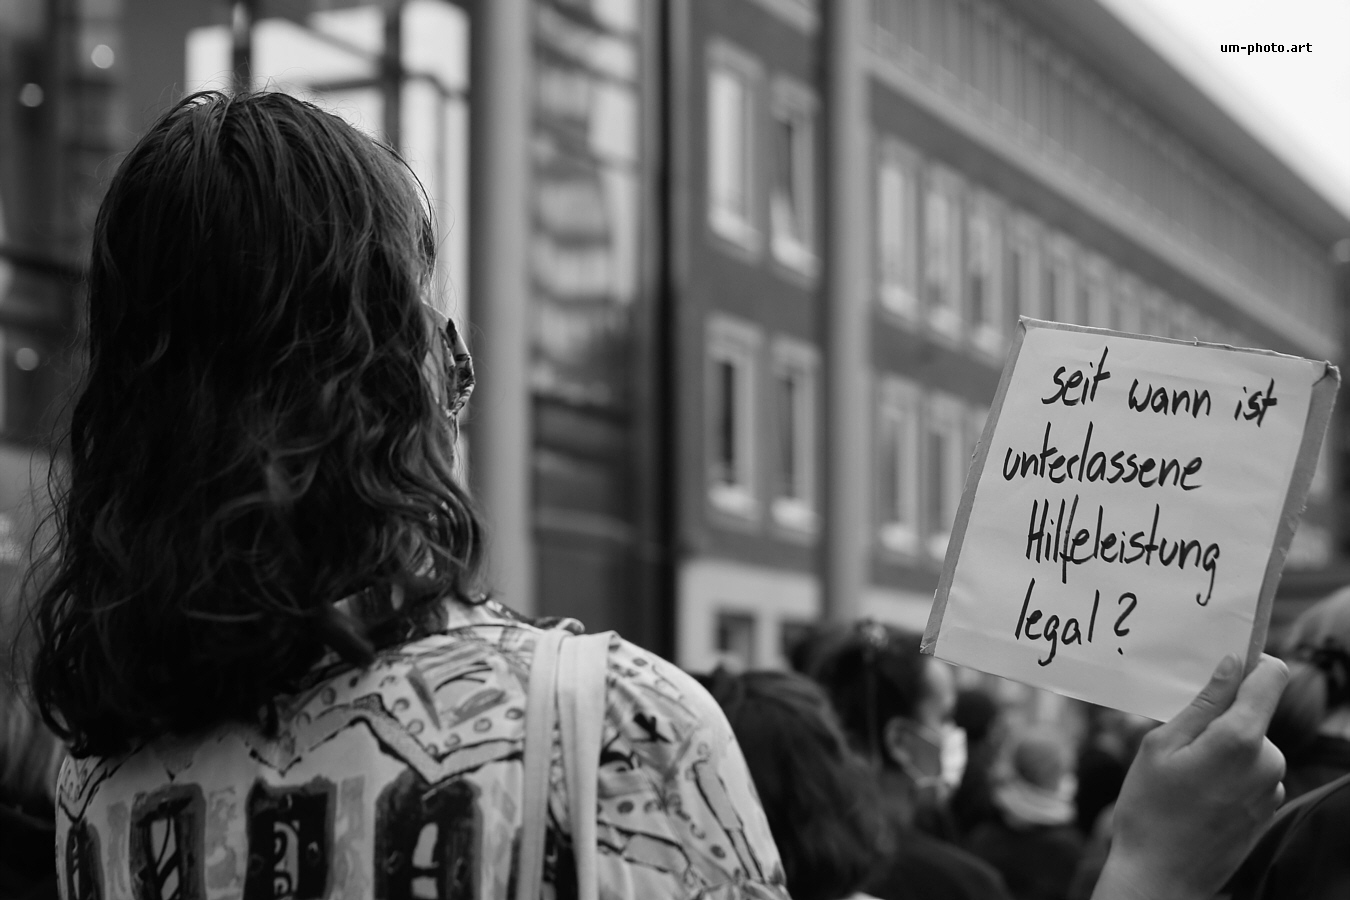 um-photo.art
seit wann ist
unterlassene
Hilfeleistung
legal?